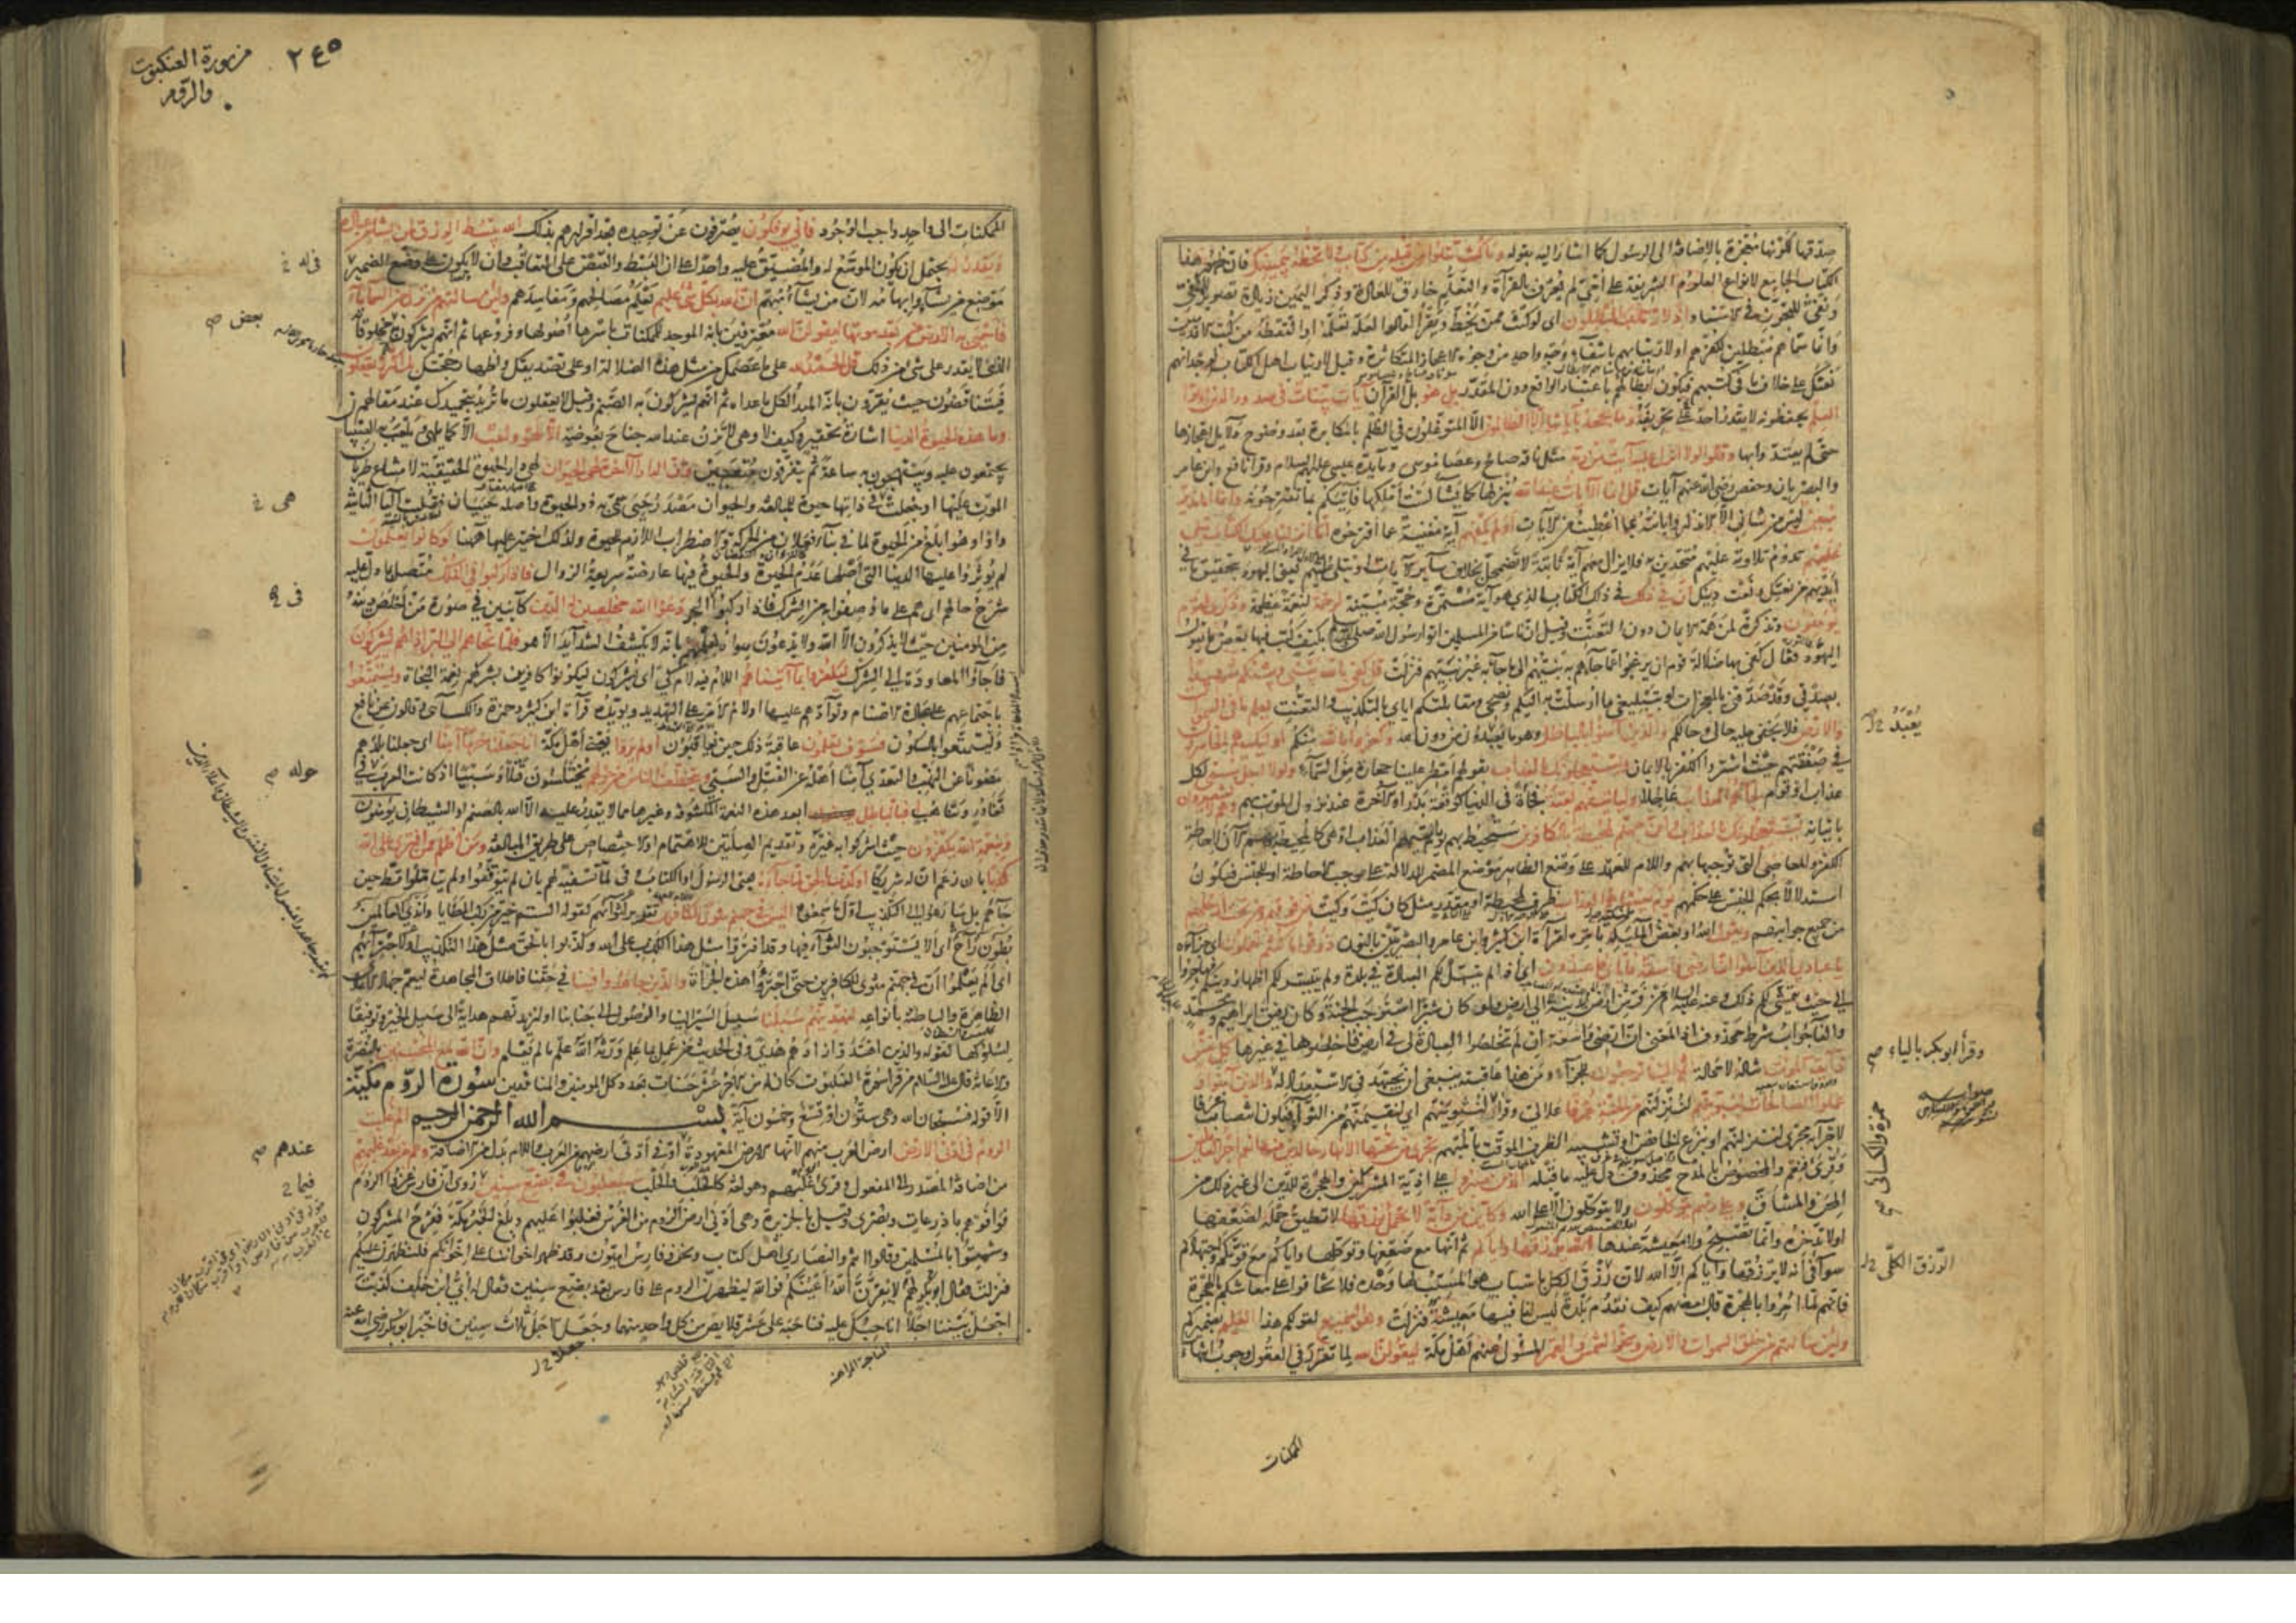 صدقها لكونها معجزة بالإضافة الى الرسول كما اشار اليه بقوله وما كنت تتلوا من قبله من كتاب ولا تخطه بيمينك فان ظهور هذا
الكتاب الجامع لانواع العلوم الشريفة على امي لم يعرف بالقراءة والتعلم خارق للعادة وذكر اليمين زيادة تصوير للمنفي
ونفي للتجوز في الاسناد اذا لارتاب المبطلون اى لو كنت ممن يخط ويقرأ لقالوا لعله تعلمه او التقطه من كتب الاقدمين
وانما سماهم مبطلين لكفرهم او لارتيابهم بانتفاء وجه واحد من وجوه الاعجاز المتكاثرة وقيل لارتاب اهل الكتاب لوجدانهم
نعتك على خلاف ما في كتبهم فيكون ابطالهم باعتبار الواقع دون المقدر بل هو بل القرآن آيات بينات في صدور الذين اوتوا
العلم يحفظونه لا يقدر احد على تحريفه وما يجحد بآياتنا الا الظالمون الا المتوغلون في الظلم بالمكابرة بعد وضوح دلايل اعجازها
حتى لم يعتدوا بها وقالوا لولا انزل عليه آيات من ربه مثل ناقة صالح وعصا موسى ومائدة عيسى عليهم السلام وقرأ نافع وابن عامر
والبصريان وحفص رضي الله عنهم آيات قل انما الآيات عند الله ينزلها كما يشاء لست املكها فآتيكم بما تقترحونه وانما انا نذير
مبين ليس من شاني الا الانذار وابانته بما اعطيت من الآيات اولم يكفهم آية مغنية عما اقترحوه انا انزلنا عليك الكتاب يتلى
عليهم تدوم تلاوته عليهم متحدين به فلا يزال معهم آية ثابتة لا تضمحل بخلاف سائر الآيات او يتلى عليهم يعني اليهود بتحقيق ما في
ايديهم من نعتك ونعت دينك ان في ذلك في ذلك الكتاب الذي هو آية مستمرة وحجة مبينة لرحمة لنعمة عظيمة وذكرى لقوم
يؤمنون وتذكرة لمن همه الايمان دون التعنت وقيل ان ناسا من المسلمين اتوا رسول الله صلى الله عليه بكتف كتب فيها بعض ما يقول
اليهود فقال كفى بها ضلالة قوم ان يرغبوا عما جاءهم به نبيهم الى ما جاء به غير نبيهم فنزلت قل كفى بالله بيني وبينكم شهيدا
بصدقي وقد صدقني بالمعجزات او بتبليغي ما ارسلت به اليكم ونصحي ومقابلتكم اياي بالتكذيب والتعنت يعلم ما في السموات
والارض فلا يخفى عليه حالي وحالكم والذين آمنوا بالباطل وهو ما يعبد من دون الله وكفروا بالله منكم اولئك هم الخاسرون
في صفقتهم حيث اشتروا الكفر بالايمان ويستعجلونك بالعذاب بقولهم امطر علينا حجارة من السماء ولولا اجل مسمى لكل
عذاب او قوم لجاءهم العذاب عاجلا وليأتينهم بغتة فجأة في الدنيا كوقعة بدر او الآخرة عند نزول الموت بهم وهم لا يشعرون
باتيانه يستعجلونك بالعذاب وان جهنم لمحيطة بالكافرين ستحيط بهم يوم يأتيهم العذاب او هي كالمحيطة بهم الآن لاحاطة
الكفر والمعاصي التي توجبها بهم واللام للعهد على وضع الظاهر موضع المضمر للدلالة على موجب الاحاطة او للجنس فيكون
استدلالا بحكم الجنس على حكمهم يوم يغشاهم العذاب ظرف لمحيطة او مقدر مثل كان كيت وكيت من فوقهم ومن تحت ارجلهم
من جميع جوانبهم ويقول الله او بعض الملئكة بامره لقراءة ابن كثير وابن عامر والبصريين بالنون ذوقوا ما كنتم تعملون اى جزاءه
يا عبادي الذين آمنوا ان ارضي واسعة فاياي فاعبدون اى اذا لم يتسهل لكم العبادة في بلدة ولم يتيسر لكم اظهار دينكم فهاجروا
الى حيث يتمشى لكم ذلك وعنه عليه السلام من فر بدينه من ارض الى ارض ولو كان شبرا استوجب الجنة وكان رفيق ابراهيم ومحمد
والفاء جواب شرط محذوف اذ المعنى ان ارضي واسعة ان لم تخلصوا العبادة لي في ارض فاخلصوها في غيرها كل نفس
ذائقة الموت تناله لا محالة ثم الينا ترجعون للجزاء ومن هذا عاقبته ينبغي ان يجتهد في الاستعداد له والذين آمنوا و
عملوا الصالحات لنبوئنهم لننزلنهم من الجنة غرفا علالي وقرأ لنثوينهم اى لنقيمنهم من الثواء فيكون انتصاب غرفا
لاجرائه مجرى لننزلنهم او بنزع الخافض او تشبيه الظرف الموقت بالمبهم تجري من تحتها الانهار خالدين فيها نعم اجر العاملين
وقرئ فنعم والمخصوص بالمدح محذوف دل عليه ما قبله الذين صبروا على اذية المشركين والهجرة للدين الى غير ذلك من
المحن والمشاق وعلى ربهم يتوكلون ولا يتوكلون الا على الله وكأين من دابة لا تحمل رزقها لا تطيق حمله لضعفها
او لا تدخره وانما تصبح ولا معيشة عندها الله يرزقها واياكم ثم انها مع ضعفها وتوكلها واياكم مع قوتكم واجتهادكم
سواء في انه لا يرزقها واياكم الا الله لان رزق الكل باسباب هو المسبب لها وحده فلا تخافوا على معاشكم بالهجرة
فانهم لما امروا بالهجرة قال بعضهم كيف نقدم بلدة ليس لنا فيها معيشة فنزلت وهو السميع لقولكم هذا العليم بضميركم
ولئن سالتهم من خلق السموات والارض وسخر الشمس والقمر المسؤل عنهم اهل مكة ليقولن الله لما تقرر في العقول وجوب انتهاء
يعبد
وقرأ ابو بكر بالياء صح
حمزة والكسائي صح
الرزق الكلي
الممكنات
٢٤٥
من سورة العنكبوت
والروم
الممكنات الى واحد واجب الوجود فانى يؤفكون يصرفون عن توحيده بعد اقرارهم بذلك الله يبسط الرزق لمن يشاء من عباده
ويقدر له يحتمل ان يكون الموسع له والمضيق عليه واحدا على ان البسط والقبض على التعاقب وان لا يكون على وضع الضمير
موضع من يشاء وابهامه لان من يشاء مبهم ان الله بكل شئ عليم يعلم مصالحهم ومفاسدهم ولئن سالتهم من نزل من السماء ماء
فاحيى به الارض من بعد موتها ليقولن الله معترفين بانه الموجد للممكنات باسرها اصولها وفروعها ثم انهم يشركون به مخلوقاته
الذي لا يقدر على شئ من ذلك قل الحمد لله على ما عصمك من مثل هذه الضلالة او على تصديقك واظهار حجتك بل اكثرهم لا يعقلون
فيتناقضون حيث يقرون بانه المبدأ لكل ما عداه ثم انهم يشركون به الصنم وقيل لا يعقلون ما تريد بتحميدك عند مقالهم
وما هذه الحيوة الدنيا اشارة تحقير وكيف لا وهي لا تزن عند الله جناح بعوضة الا لهو ولعب الا كما يلهى ويلعب به الصبيان
يجتمعون عليه ويبتهجون به ساعة ثم يتفرقون متعبين وان الدار الآخرة لهي الحيوان لهي دار الحيوة الحقيقية لامتناع طريان
الموت عليها او جعلت في ذاتها حيوة للمبالغة والحيوان مصدر حيي سمي به ذو الحيوة واصله حييان فقلبت الياء الثانية
واوا وهو ابلغ من الحيوة لما في بناء فعلان من الحركة والاضطراب اللازم للحيوة ولذلك اختير عليها ههنا لو كانوا يعلمون
لم يؤثروا عليها الدنيا التي اصلها عدم الحيوة والحيوة فيها عارضة سريعة الزوال فاذا ركبوا في الفلك متصل بما دل عليه
شرح حالهم اى هم على ما وصفوا به من الشرك فاذا ركبوا البحر دعوا الله مخلصين له الدين كائنين في صورة من اخلص دينه
من المؤمنين حيث لا يذكرون الا الله ولا يدعون سواه لعلمهم بانه لا يكشف الشدائد الا هو فلما نجاهم الى البر اذا هم يشركون
فاجاؤا المعاودة الى الشرك ليكفروا بما آتيناهم اللام فيه لام كي اى يشركون ليكونوا كافرين بشركهم نعمة النجاة وليتمتعوا
باجتماعهم على عبادة الاصنام وتوادهم عليها او لام الامر على التهديد ويؤيده قراءة ابن كثير وحمزة والكسائي وقالون عن نافع
وليتمتعوا بالسكون فسوف يعلمون عاقبة ذلك حين يعاقبون اولم يروا يعني اهل مكة انا جعلنا حرما آمنا اى جعلنا بلدهم
مصونا عن النهب والتعدي آمنا اهله عن القتل والسبي ويتخطف الناس من حولهم يختلسون قتلا وسبيا اذ كانت العرب في
تغاور وتناهب افبالباطل ابعد هذه النعمة المكشوفة وغيرها مما لا يقدر عليه الا الله بالصنم او الشيطان يؤمنون
وبنعمة الله يكفرون حيث اشركوا به غيره وتقديم الصلتين للاهتمام او الاختصاص على طريق المبالغة ومن اظلم ممن افترى على الله
كذبا بان زعم ان له شريكا او كذب بالحق لما جاءه يعني الرسول او الكتاب وفي لما تسفيه لهم بان لم يتوقفوا ولم يتأملوا قط حين
جاءهم بل سارعوا الى التكذيب اول ما سمعوه اليس في جهنم مثوى للكافرين تقرير لثوائهم كقوله الستم خير من ركب المطايا واندى العالمين
بطون راح اى الا يستوجبون الثواء فيها وقد افتروا مثل هذا الكذب على الله وكذبوا بالحق مثل هذا التكذيب او لاجترائهم
اى الم يعلموا ان في جهنم مثوى للكافرين حتى اجترؤا هذه الجرأة والذين جاهدوا فينا في حقنا فاطلاق المجاهدة ليعم جهاد الاعادي
الظاهرة والباطنة بانواعه لنهدينهم سبلنا سبيل السير الينا والوصول الى جنابنا او لنزيدنهم هداية الى سبيل الخير وتوفيقا
لسلوكها كقوله والذين اهتدوا زادهم هدى وفي الحديث من عمل بما علم ورثه الله علم ما لم يعلم وان الله لمع المحسنين بالنصرة
والاعانة قال عليه السلام من قرأ سورة العنكبوت كان له من الاجر عشر حسنات بعدد كل المؤمنين والمنافقين سورة الروم مكية
الا قوله فسبحان الله وهي ستون او تسع وخمسون آية بسم الله الرحمن الرحيم الم غلبت
الروم في ادنى الارض ارض العرب منهم لانها الارض المعهودة او في ادنى ارضهم من العرب واللام بدل من الاضافة وهم من بعد غلبهم
من اضافة المصدر الى المفعول وقرئ غلبهم وهو لغة كالجلب والحلب سيغلبون في بضع سنين روي ان فارس غزوا الروم
فوافوهم باذرعات وبصرى وقيل بالجزيرة وهي ادنى ارض الروم من الفرس فغلبوا عليهم وبلغ الخبر مكة ففرح المشركون
وشمتوا بالمسلمين وقالوا انتم والنصارى اهل كتاب ونحن وفارس اميون وقد ظهر اخواننا على اخوانكم فلنظهرن عليكم
فنزلت فقال ابو بكر لهم لا يقرن الله اعينكم فوالله ليظهرن الروم على فارس بعد بضع سنين فقال له ابي ابن خلف كذبت
اجعل بيننا اجلا اناحبك عليه فناحبه على عشر قلايص من كل واحد منهما وجعل الاجل ثلاث سنين فاخبر ابو بكر رضي الله عنه
بعض صح
هي
في
حوله صح
عندهم صح
فيما